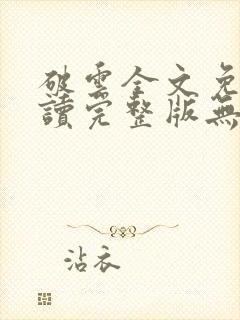 破雲全文免
讀完整版無
沾衣